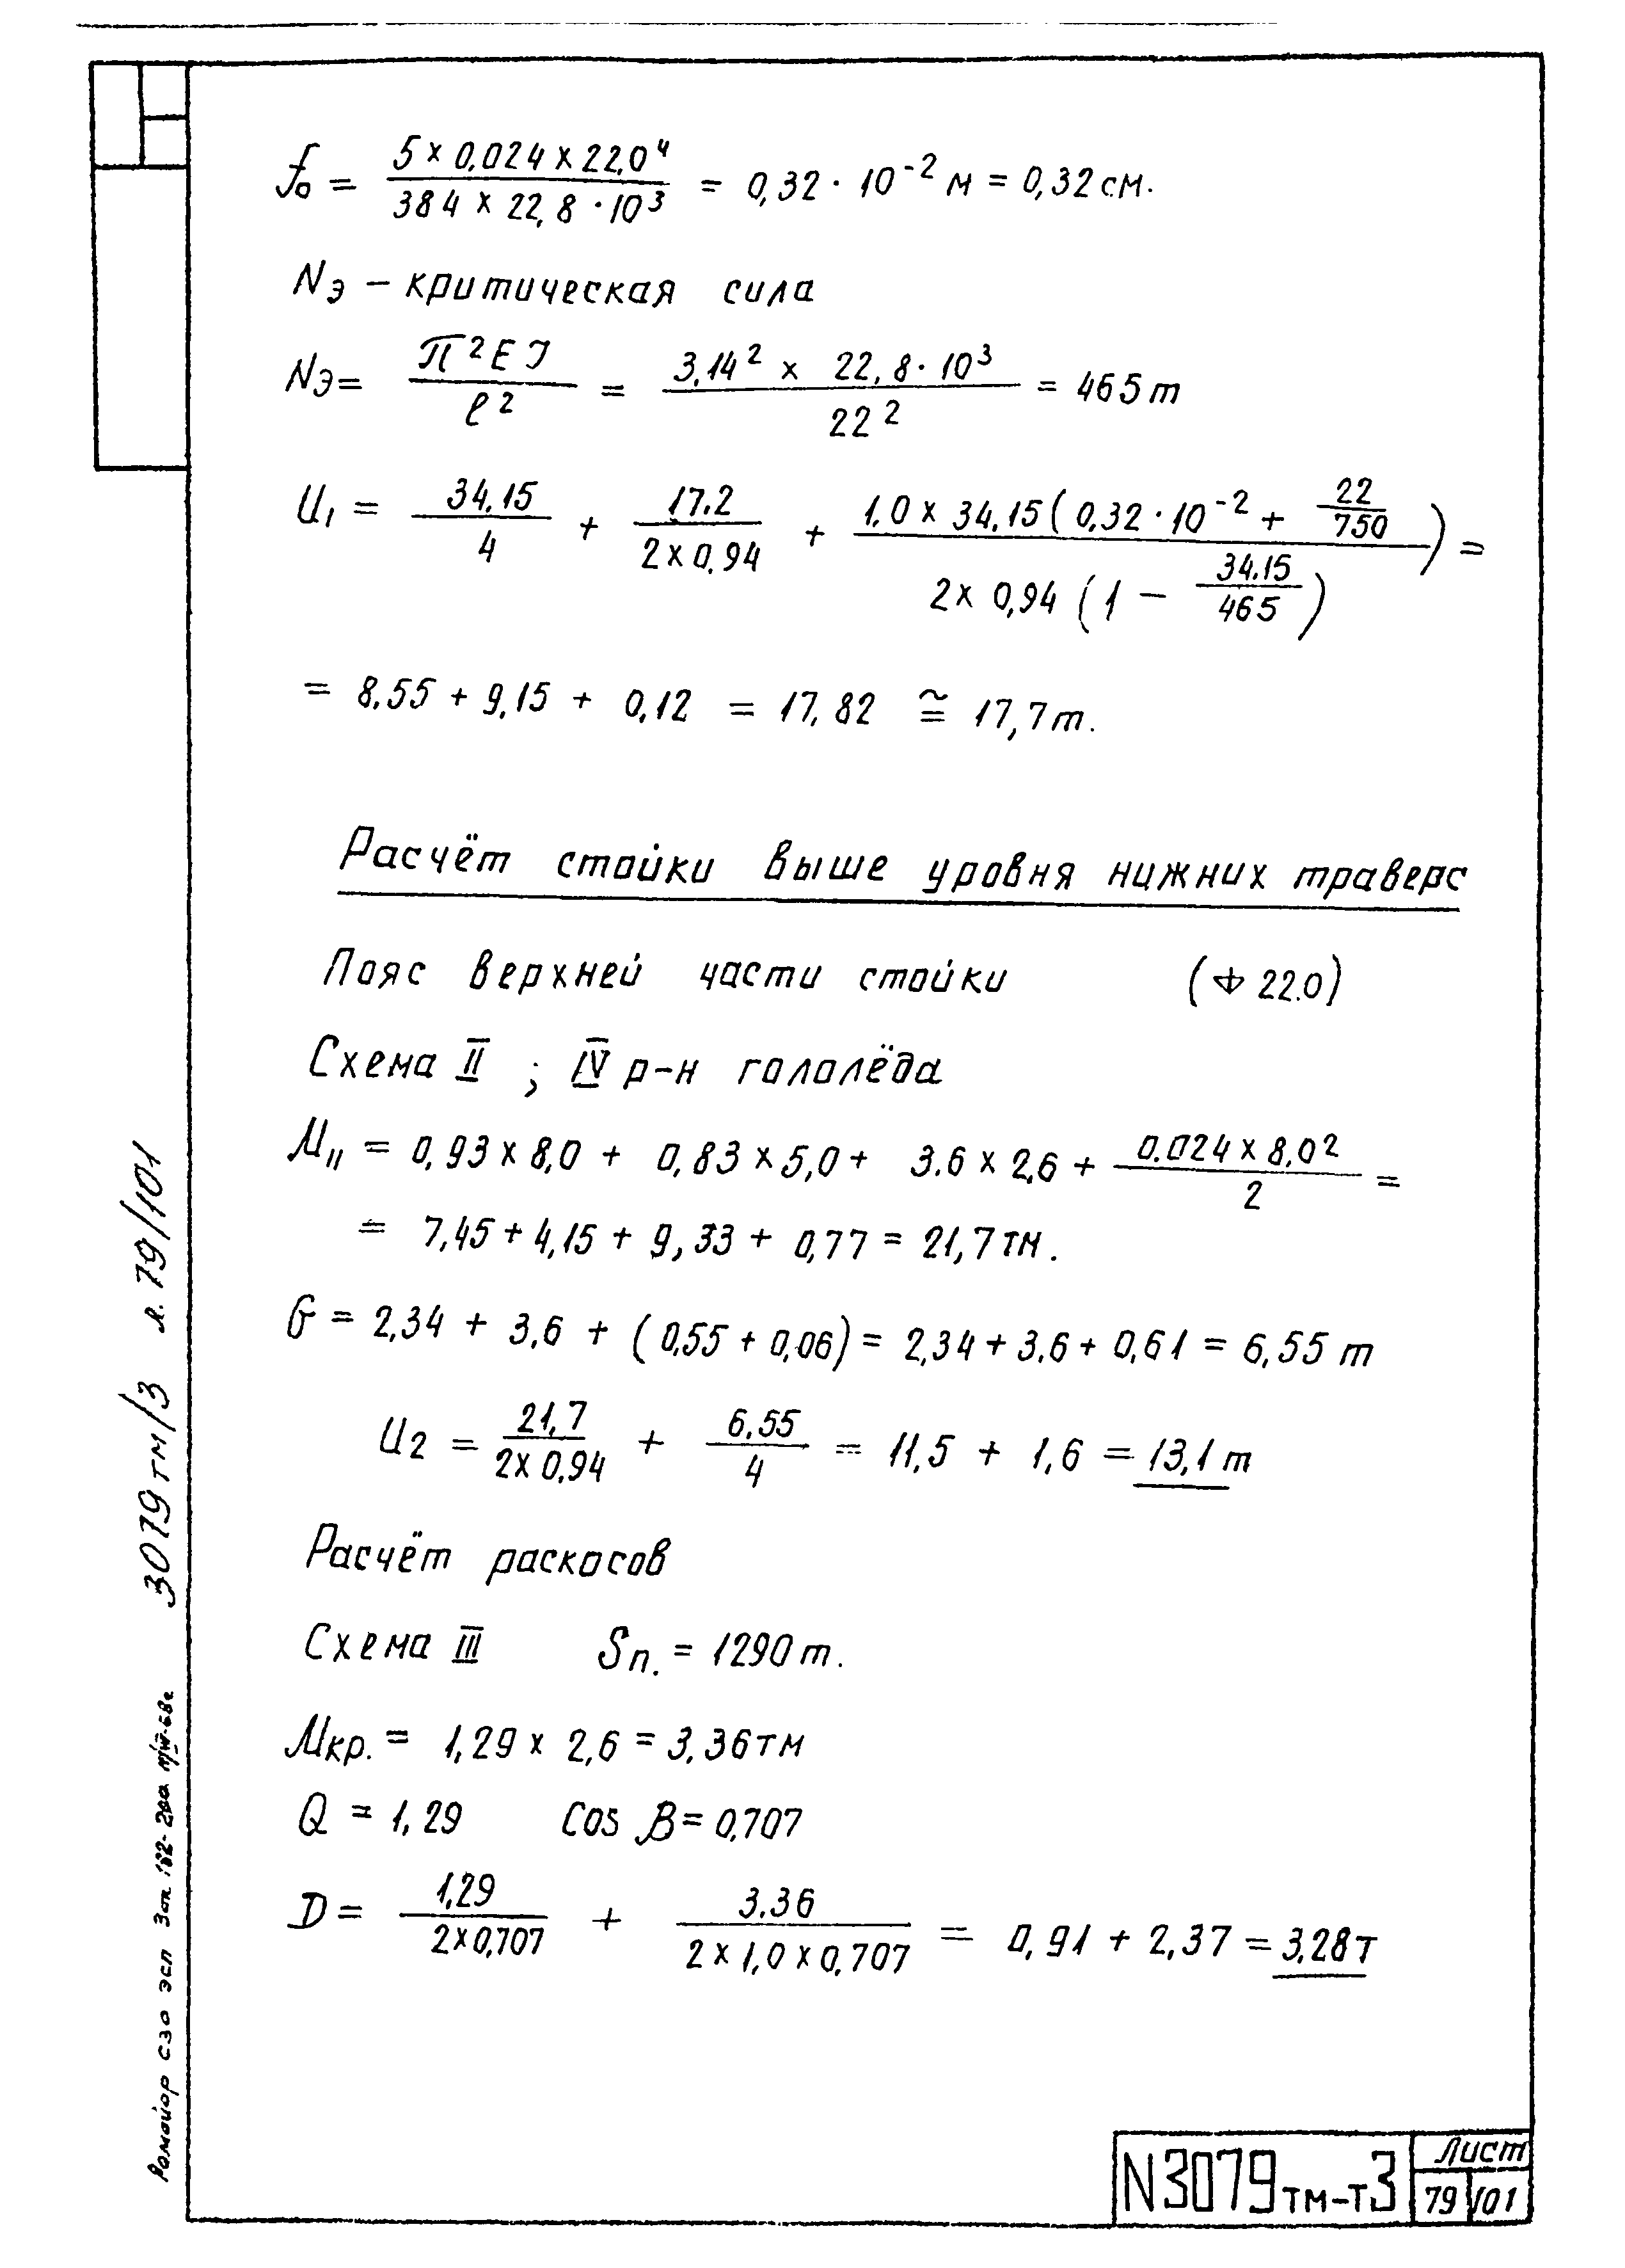 f₀ = 5 × 0,024 × 22,0⁴ / 384 × 22,8 · 10³ = 0,32 · 10⁻² м = 0,32 см.
Nэ – критическая сила
Nэ = π² E J / ℓ² = 3,14² × 22,8 · 10³ / 22² = 465 т
U₁ = 34,15 / 4 + 17.2 / 2 × 0,94 + 1,0 × 34,15 ( 0,32 · 10⁻² + 22 / 750 ) / 2 × 0,94 ( 1 – 34.15 / 465 ) =
= 8,55 + 9,15 + 0,12 = 17,82 ≅ 17,7 т.
Расчёт стойки выше уровня нижних траверс
Пояс верхней части стойки (⌖ 22.0)
Схема II ; IV р-н гололёда
M₁₁ = 0,93 × 8,0 + 0,83 × 5,0 + 3.6 × 2,6 + 0.024 × 8,0² / 2 =
= 7,45 + 4,15 + 9,33 + 0,77 = 21,7 тм.
G = 2,34 + 3,6 + ( 0,55 + 0,06 ) = 2,34 + 3,6 + 0,61 = 6,55 т
U₂ = 21,7 / 2 × 0,94 + 6,55 / 4 = 11,5 + 1,6 = 13,1 т
Расчёт раскосов
Схема III Sп. = 1290 т.
Mкр. = 1,29 × 2,6 = 3,36 тм
Q = 1,29 cos β = 0,707
D = 1,29 / 2 × 0,707 + 3.36 / 2 × 1,0 × 0,707 = 0,91 + 2,37 = 3,28 т
3079 тм/3 л. 79/101
СЗО ЭСП Зак
N3079тм-т3
Лист
79 101